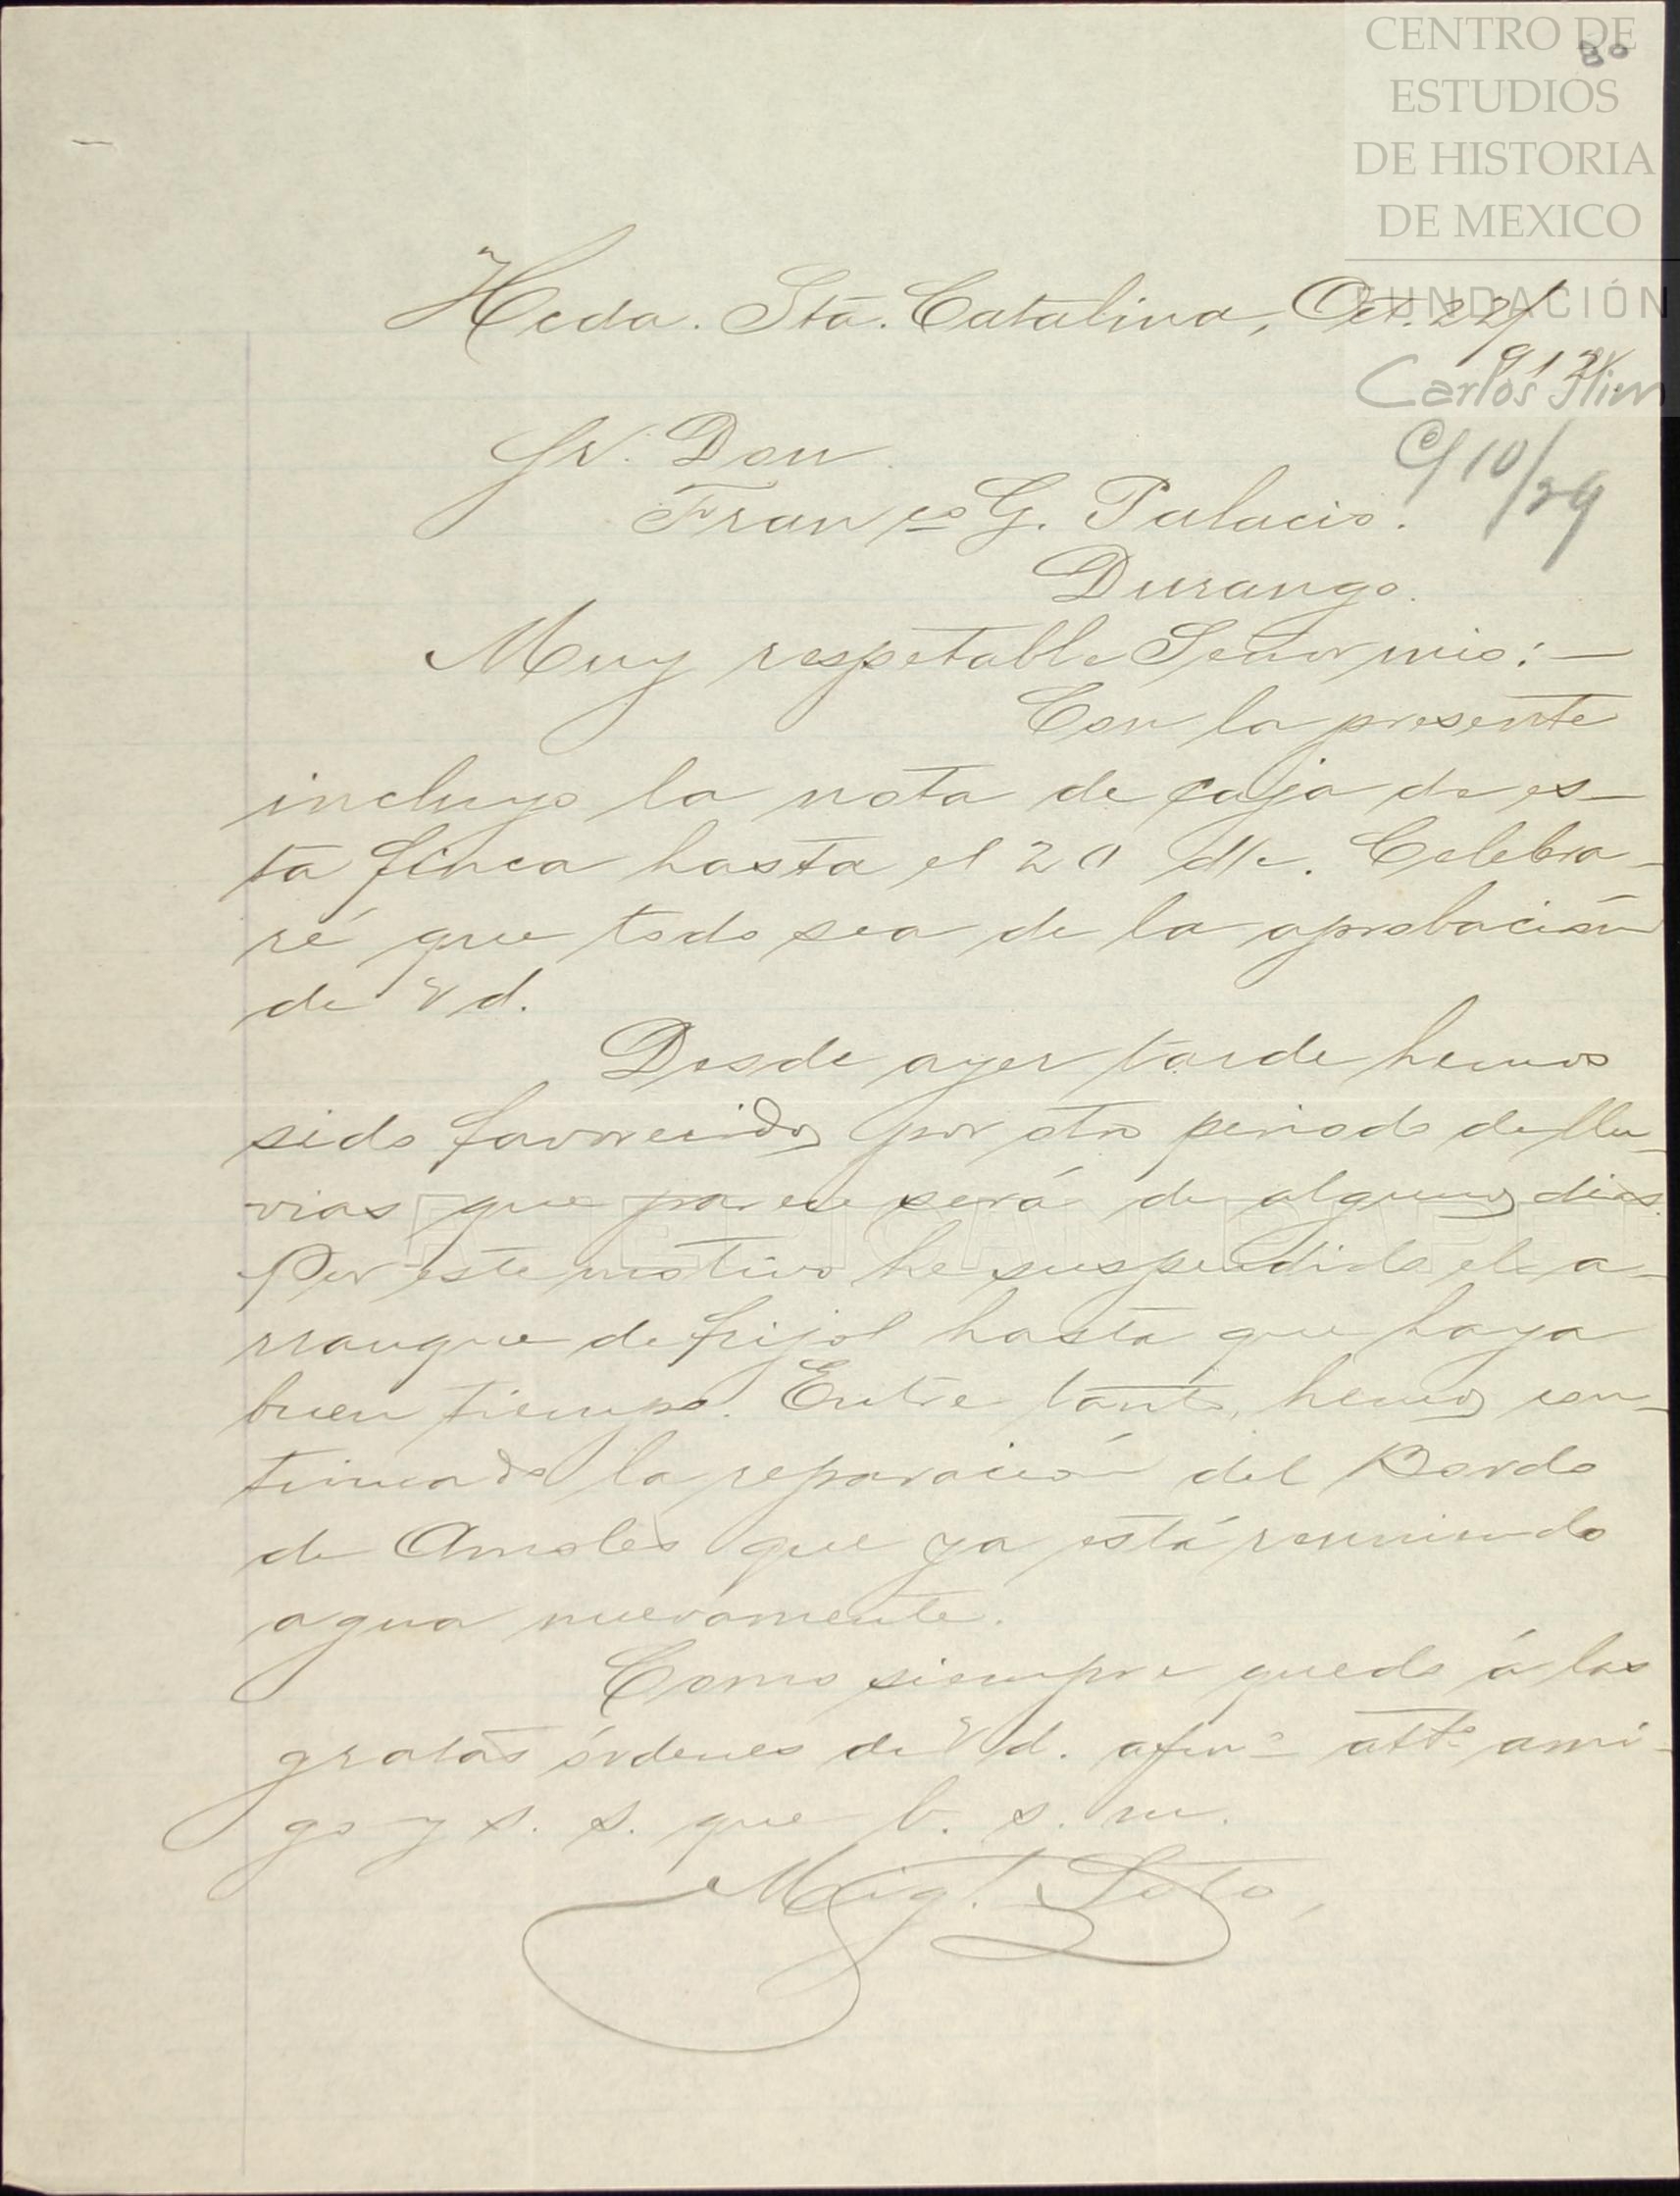 CENTRO DE
ESTUDIOS
DE HISTORIA
DE MEXICO
FUNDACIÓN
Carlos Slim
80
Hcda. Sta. Catalina, Oct. 22/
912
C/10/29
Sr. Don
Franco G. Palacio.
Durango.
Muy respetable Señor mio:—
Con la presente
incluyo la nota de caja de es-
ta finca hasta el 20 d/c. Celebra-
ré que todo sea de la aprobación
de Vd.
Desde ayer tarde hemos
sido favorecidos por otro periodo de llu-
vias que parece será de algunos dias.
Por este motivo he suspendido el a-
rranque de frijol hasta que haya
buen tiempo. Entre tanto, hemos con-
tinuado la reparación del Bordo
de Amoles que ya está reuniendo
agua nuevamente.
Como siempre quedo á las
gratas órdenes de Vd. afmo. atto. ami-
go y s. s. que b. s. m.
Migl. Soto